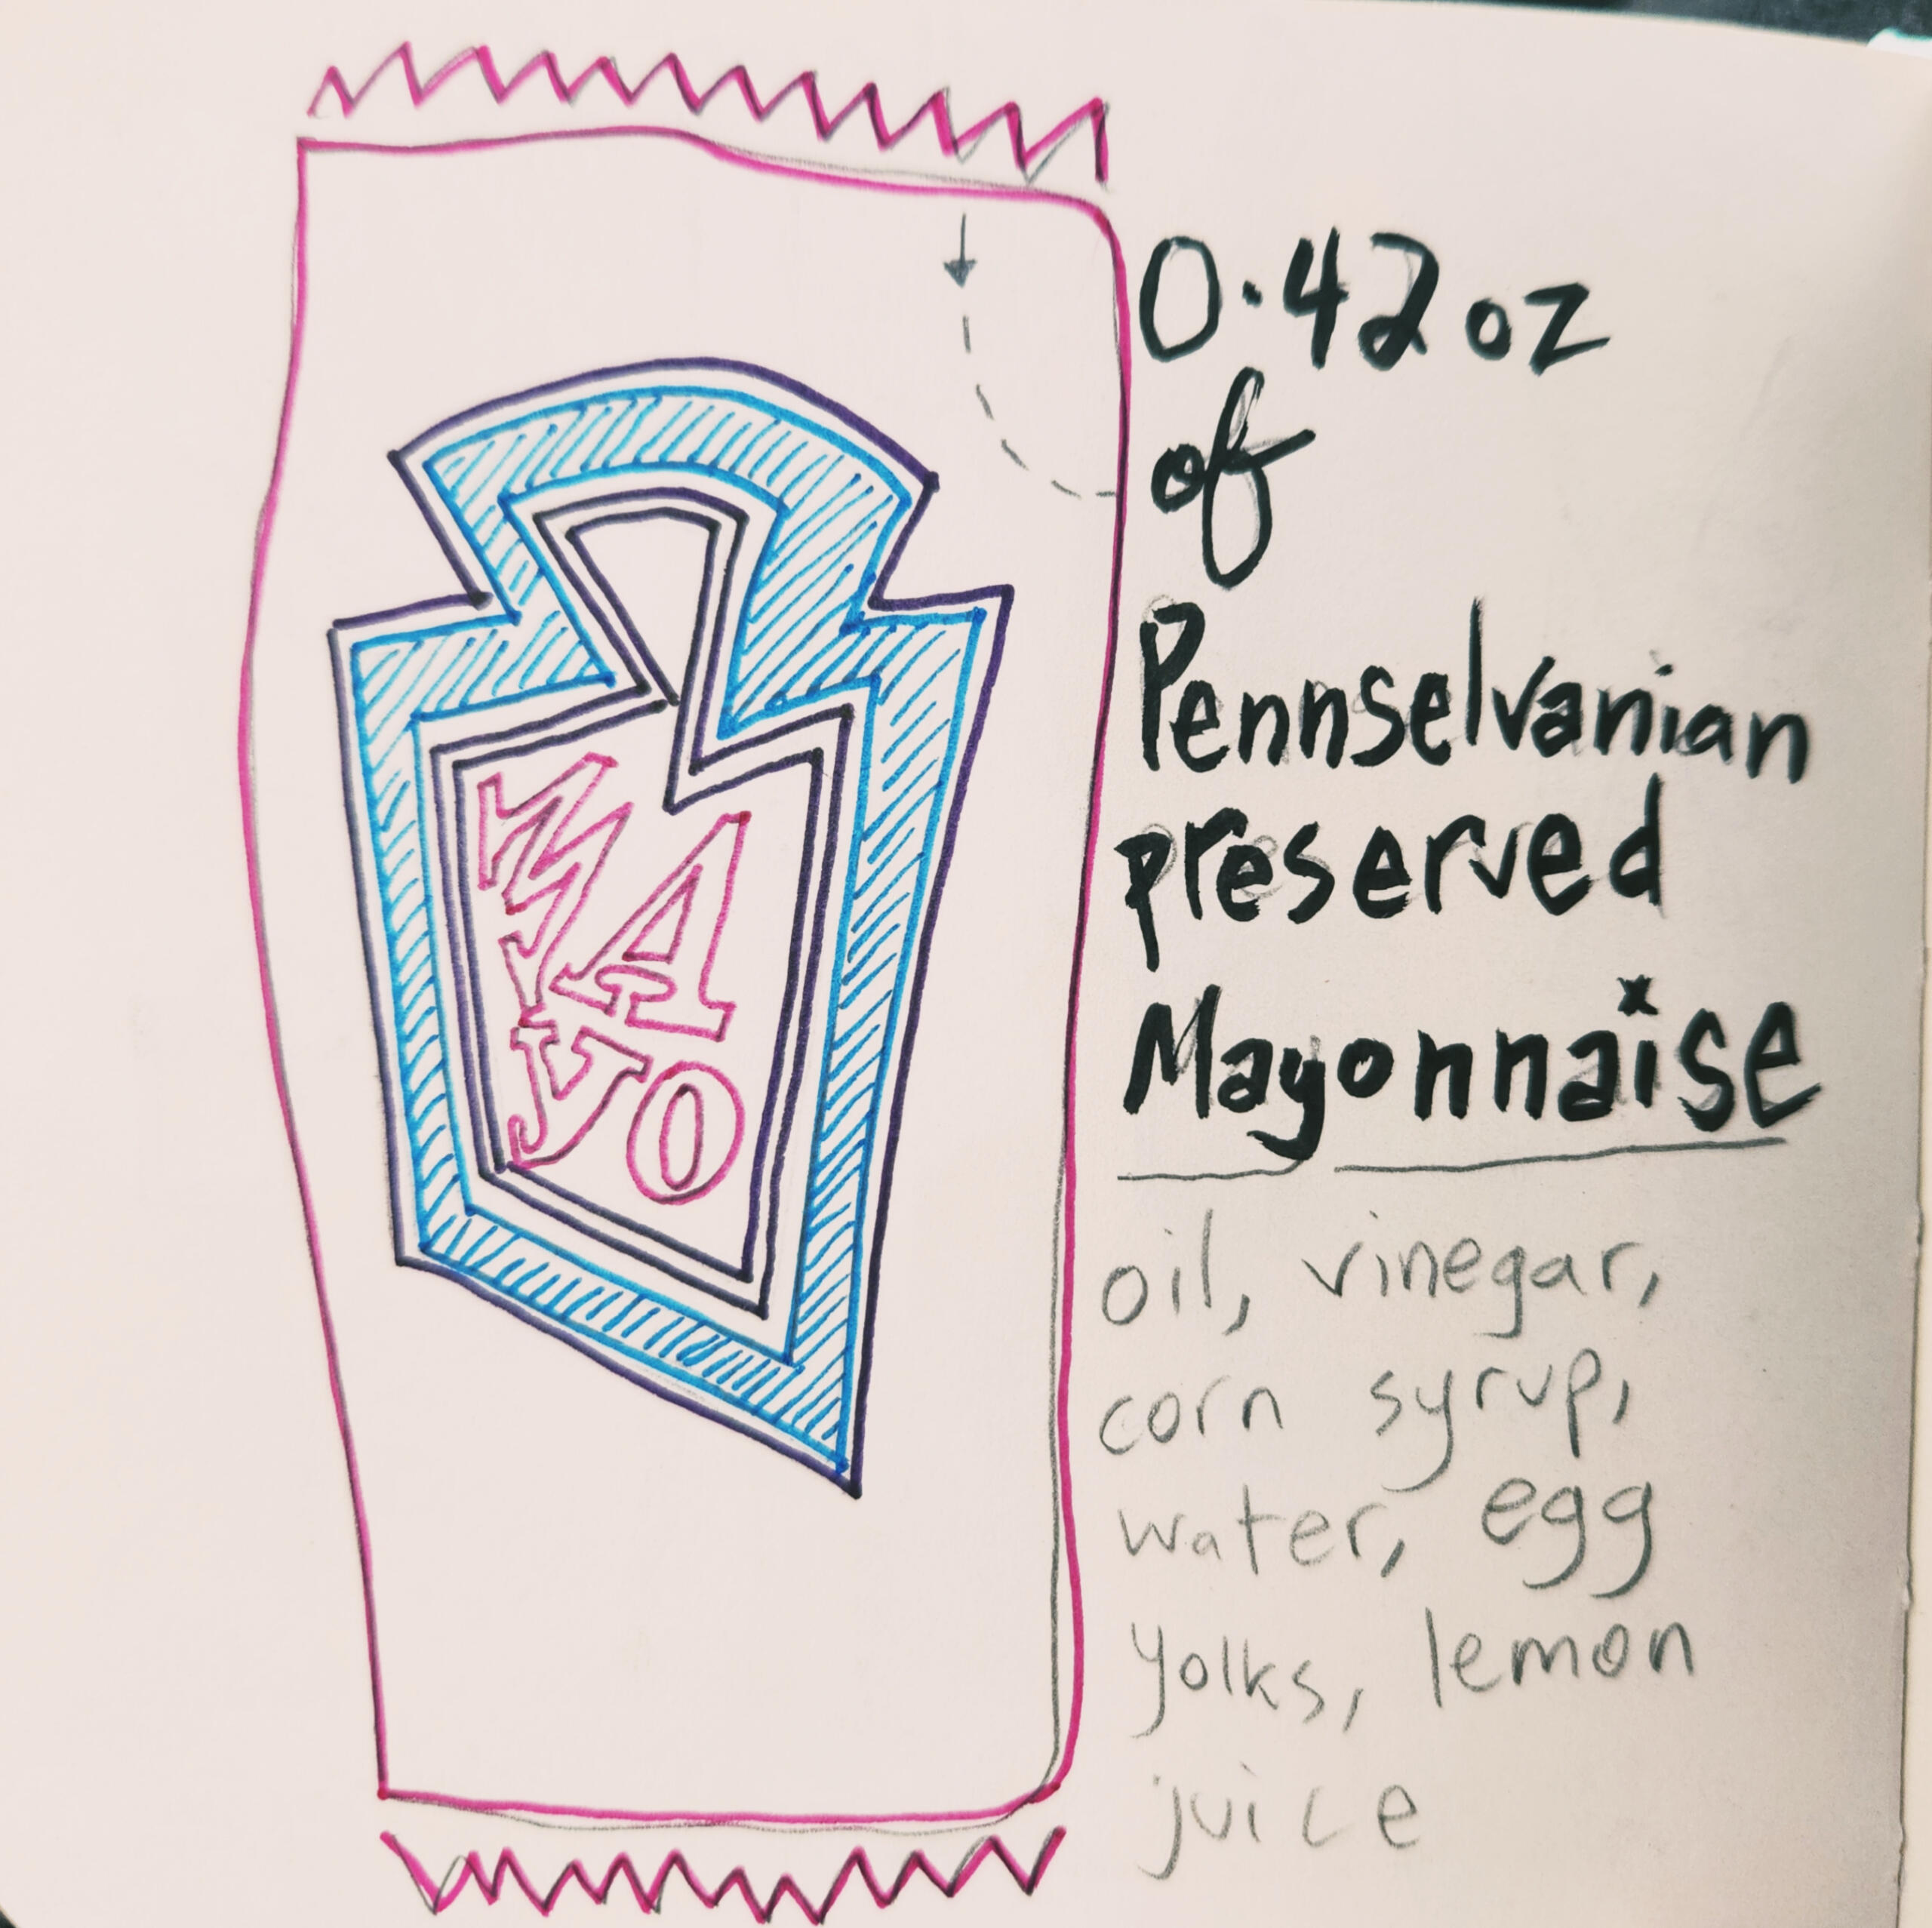 MAYO
0.42 oz
of
Pennselvanian
preserved
Mayonnaise
oil, vinegar,
corn syrup,
water, egg
yolks, lemon
juice